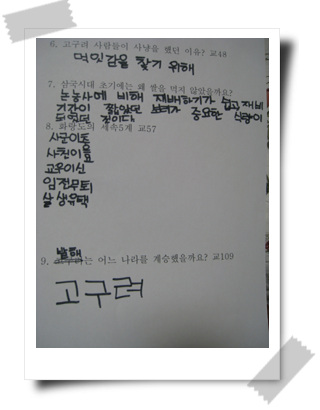 6. 고구려 사람들이 사냥을 했던 이유? 교48
먹잇감을 찾기 위해
7. 삼국시대 초기에는 왜 쌀을 먹지 않았을까요?
논농사에 비해 재배하기가 쉽고 재배
기간이 짧았던 보리가 중요한 식량이
되었던 것이다.
8. 화랑도의 세속5계 교57
사군이충
사친이효
교우이신
임전무퇴
살생유택
발해
9. 는 어느 나라를 계승했을까요? 교109
고구려